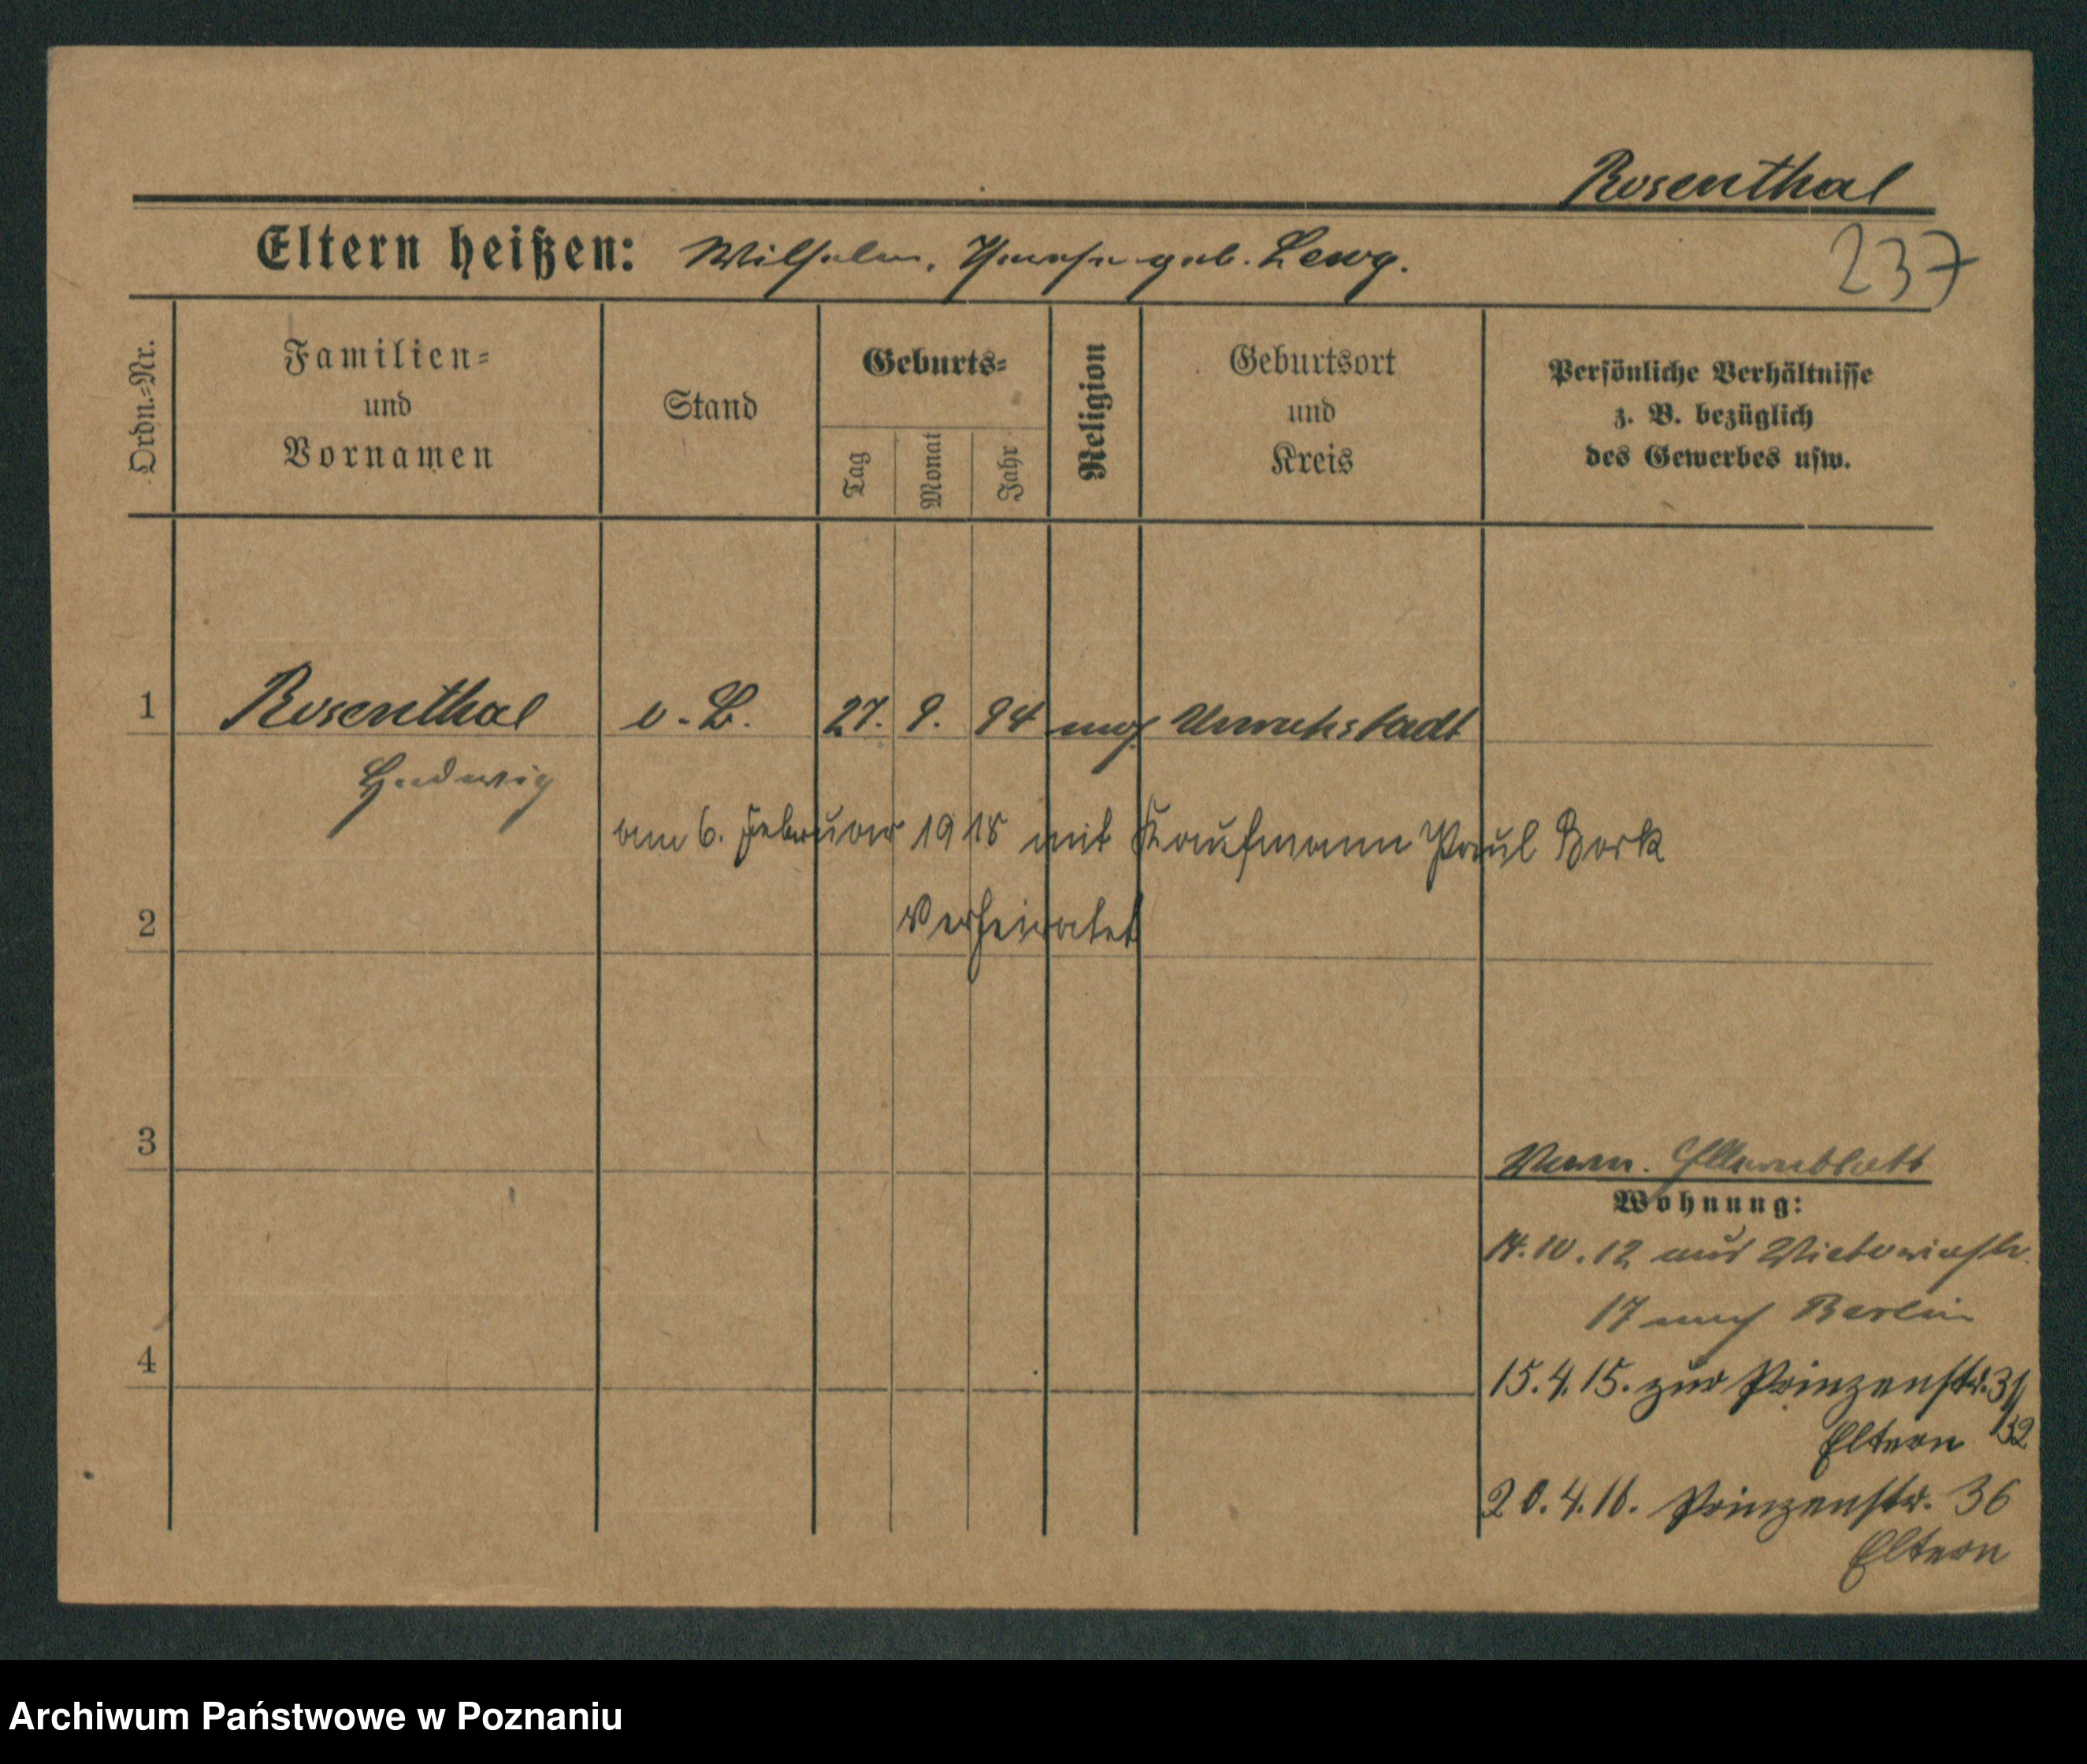 Rosenthal
Eltern heißen: Wilhelm, geb. Lewy.
237
Ordn.-Nr.
Familien-
und
Vornamen
Stand
Geburts-
Tag
Monat
Jahr
Religion
Geburtsort
und
Kreis
Persönliche Verhältnisse
z. B. bezüglich
des Gewerbes usw.
1 Rosenthal o. B. 27. 9. 94 mos. Unruhstadt
Hedwig
am 6. Februar 1918 mit Kaufmann Paul Bork
2 verheiratet
3
Elternblatt
Wohnung:
14.10.12 aus Victoriastr.
17 nach Berlin
4
15.4.15. zur Prinzenstr. 31/
Eltern 32
20.4.16. Prinzenstr. 36
Eltern
Archiwum Państwowe w Poznaniu